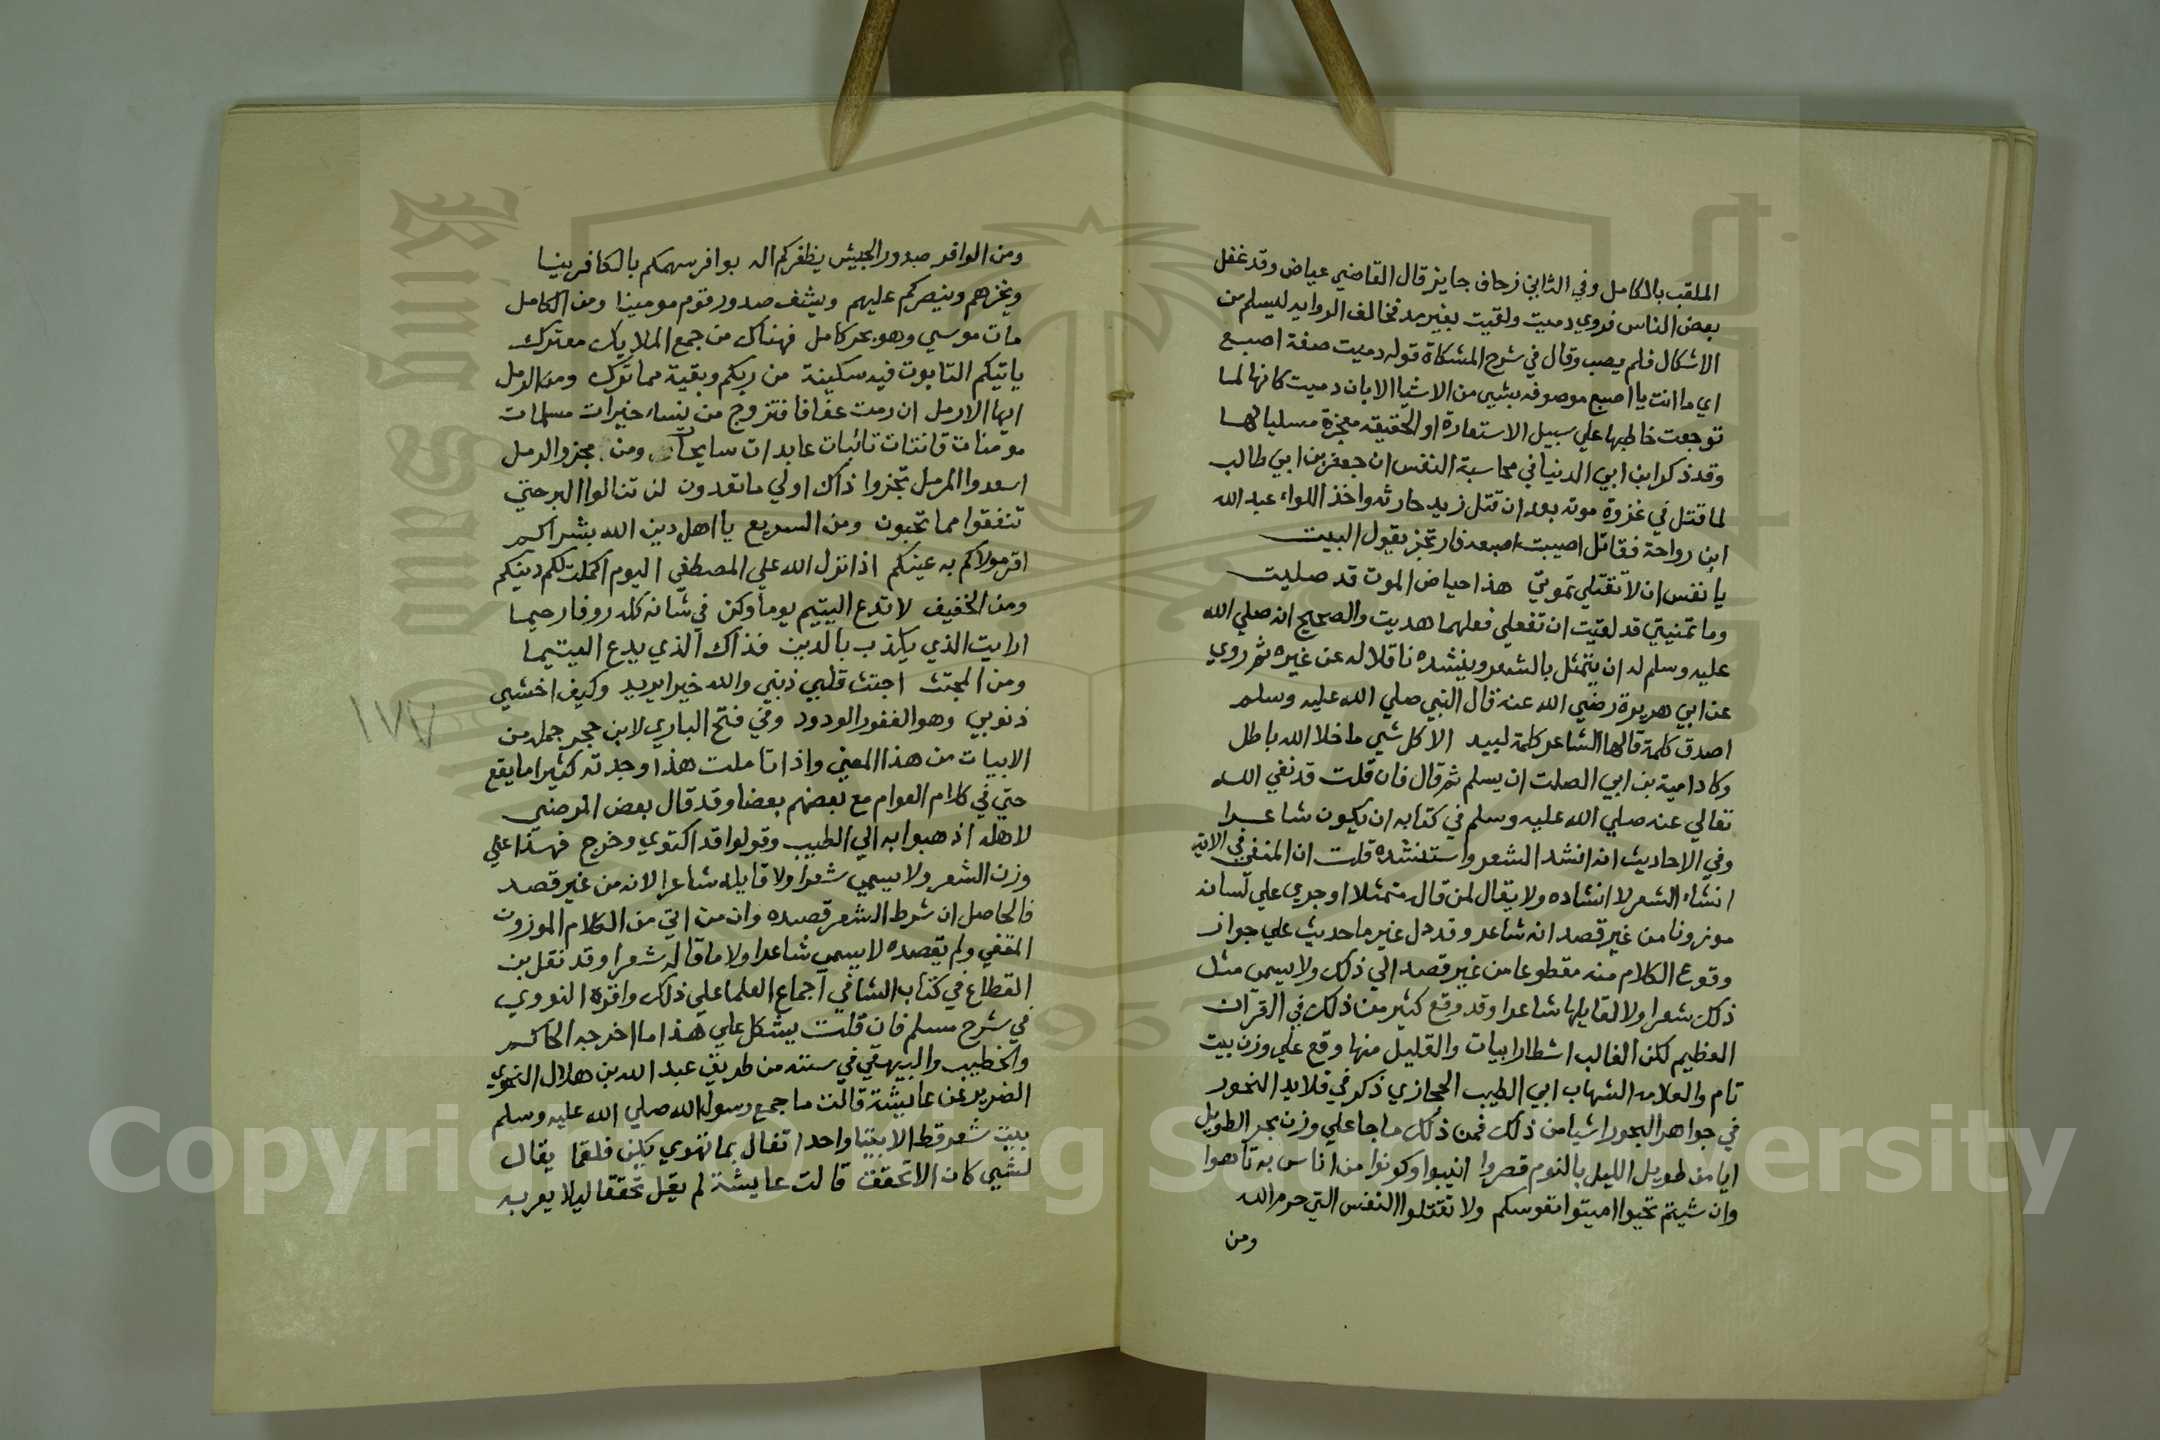 الملقب بالكامل وفي الثاني زحاف جايز قال القاضي عياض وقد غفل
بعض الناس فروي دميت ولقيت بغير مد فخالف الروايه ليسلم من
الاشكال فلم يصب وقال في شرح المشكاة قوله دميت صفة اصبع
اي ما انت يا اصبع موصوفه بشيي من الاشيا الا بان دميت كانها لما
توجعت خاطبها علي سبيل الاستعارة او الحقيقه معجزة مسليا لها
وقد ذكر ابن ابي الدنيا في محاسبة النفس ان جعفر بن ابي طالب
لما قتل في غزوة موته بعد ان قتل زيد حارثه واخذ اللواء عبد الله
ابن رواحة فقاتل اصيبت اصبعه فارتجز يقول البيت
يا نفس ان لا تقتلي تموتي هذا حياض الموت قد صليت
وما تمنيتي قد لقيت ان تفعلي فعلهما هديت والصحيح انه صلي الله
عليه وسلم له ان يتمثل بالشعر وينشده ناقلا له عن غيره ثم روي
عن ابي هريرة رضي الله عنه قال النبي صلي الله عليه وسلم
اصدق كلمة قالها الشاعر كلمة لبيد الا كل شي ما خلا الله باطل
وكاد امية بن ابي الصلت ان يسلم ثم قال فان قلت قد نفي الله
تعالي عنه صلي الله عليه وسلم في كتابه ان يكون شاعرا
وفي الاحاديث انه انشد الشعر واستنشده قلت ان المنفي في الايه
انشاء الشعر لا انشاده ولا يقال لمن قال متمثلا او جري علي لسانه
موزونا من غير قصد انه شاعر وقد دل غير ما حديث علي جواز
وقوع الكلام منه مقطوعا من غير قصد الي ذلك ولا يسمي مثل
ذلك شعرا ولا لقايلها شاعرا وقد وقع كثير من ذلك في القرآن
العظيم لكن الغالب اشطار ابيات والقليل منها وقع علي وزن بيت
تام والعلامه الشهاب ابي الطيب الحجازي ذكر في قلايد النحور
في جواهر البحور اشيا من ذلك فمن ذلك ما جا علي وزن بحر الطويل
ايا من طويل الليل بالنوم قصروا انيبوا وكونوا من اناس به تاهوا
وان شيتم تحيوا اميتوا نفوسكم ولا تقتلوا النفس التي حرم الله
ومن
ومن الوافر صدور الجيش يظفركم اله بوافر سهمكم بالكافرينا
ويخزهم وينصركم عليهم ويشف صدور قوم مومنينا ومن الكامل
مات موسي وهو بحر كامل فهناك من جمع الملايك معترك
ياتيكم التابوت فيه سكينة من ربكم وبقية مما ترك ومن الرمل
ايها الارمل ان رمت عفافا فتزوج من نساء خيرات مسلمات
مومنات قانتات تائبات عابدات سايحات ومن مجزو الرمل
اسعدوا المرمل تجزوا ذاك اولي ما تعدون لن تنالوا البر حتي
تنفقوا مما تحبون ومن السريع يا اهل دين الله بشراكم
اقر مولاكم به عينكم اذ انزل الله علي المصطفي اليوم اكملت لكم دينكم
ومن الخفيف لا تدع اليتيم يوما وكن في شانه كله روفا رحيما
ارايت الذي يكذب بالدين فذاك الذي يدع اليتيما
ومن المجتث اجتث قلبي ذنبي والله خيرا يريد وكيف اخشي
ذنوبي وهو الغفور الودود وفي فتح الباري لابن حجر جمله من
الابيات من هذا المعني واذا تاملت هذا وجدته كثيرا ما يقع
حتي في كلام العوام مع بعضهم بعضا وقد قال بعض المرضي
لاهله اذهبوا به الي الطبيب وقولوا قد اكتوي وخرج فهذا علي
وزن الشعر ولا يسمي شعرا ولا قايله شاعرا لانه من غير قصد
فالحاصل ان شرط الشعر قصده وان من اتي من الكلام الموزون
المقفي ولم يقصده لا يسمي شاعرا ولا ما قاله شعرا وقد نقل بن
القطاع في كتاب الشافي اجماع العلما علي ذلك واقره النووي
في شرح مسلم فان قلت يشكل علي هذا ما اخرجه الحاكم
والخطيب والبيهقي في سننه من طريق عبد الله بن هلال النحوي
الضرير عن عايشة قالت ما جمع رسول الله صلي الله عليه وسلم
بيت شعر قط الا بيتا واحدا تفال بما تهوي يكن فلقما يقال
لشيي كان الا تحقق قالت عايشة لم يقل تحققا ليلا يعربه
١٧٧
Copyright © King Saud University
King Saud University
1957